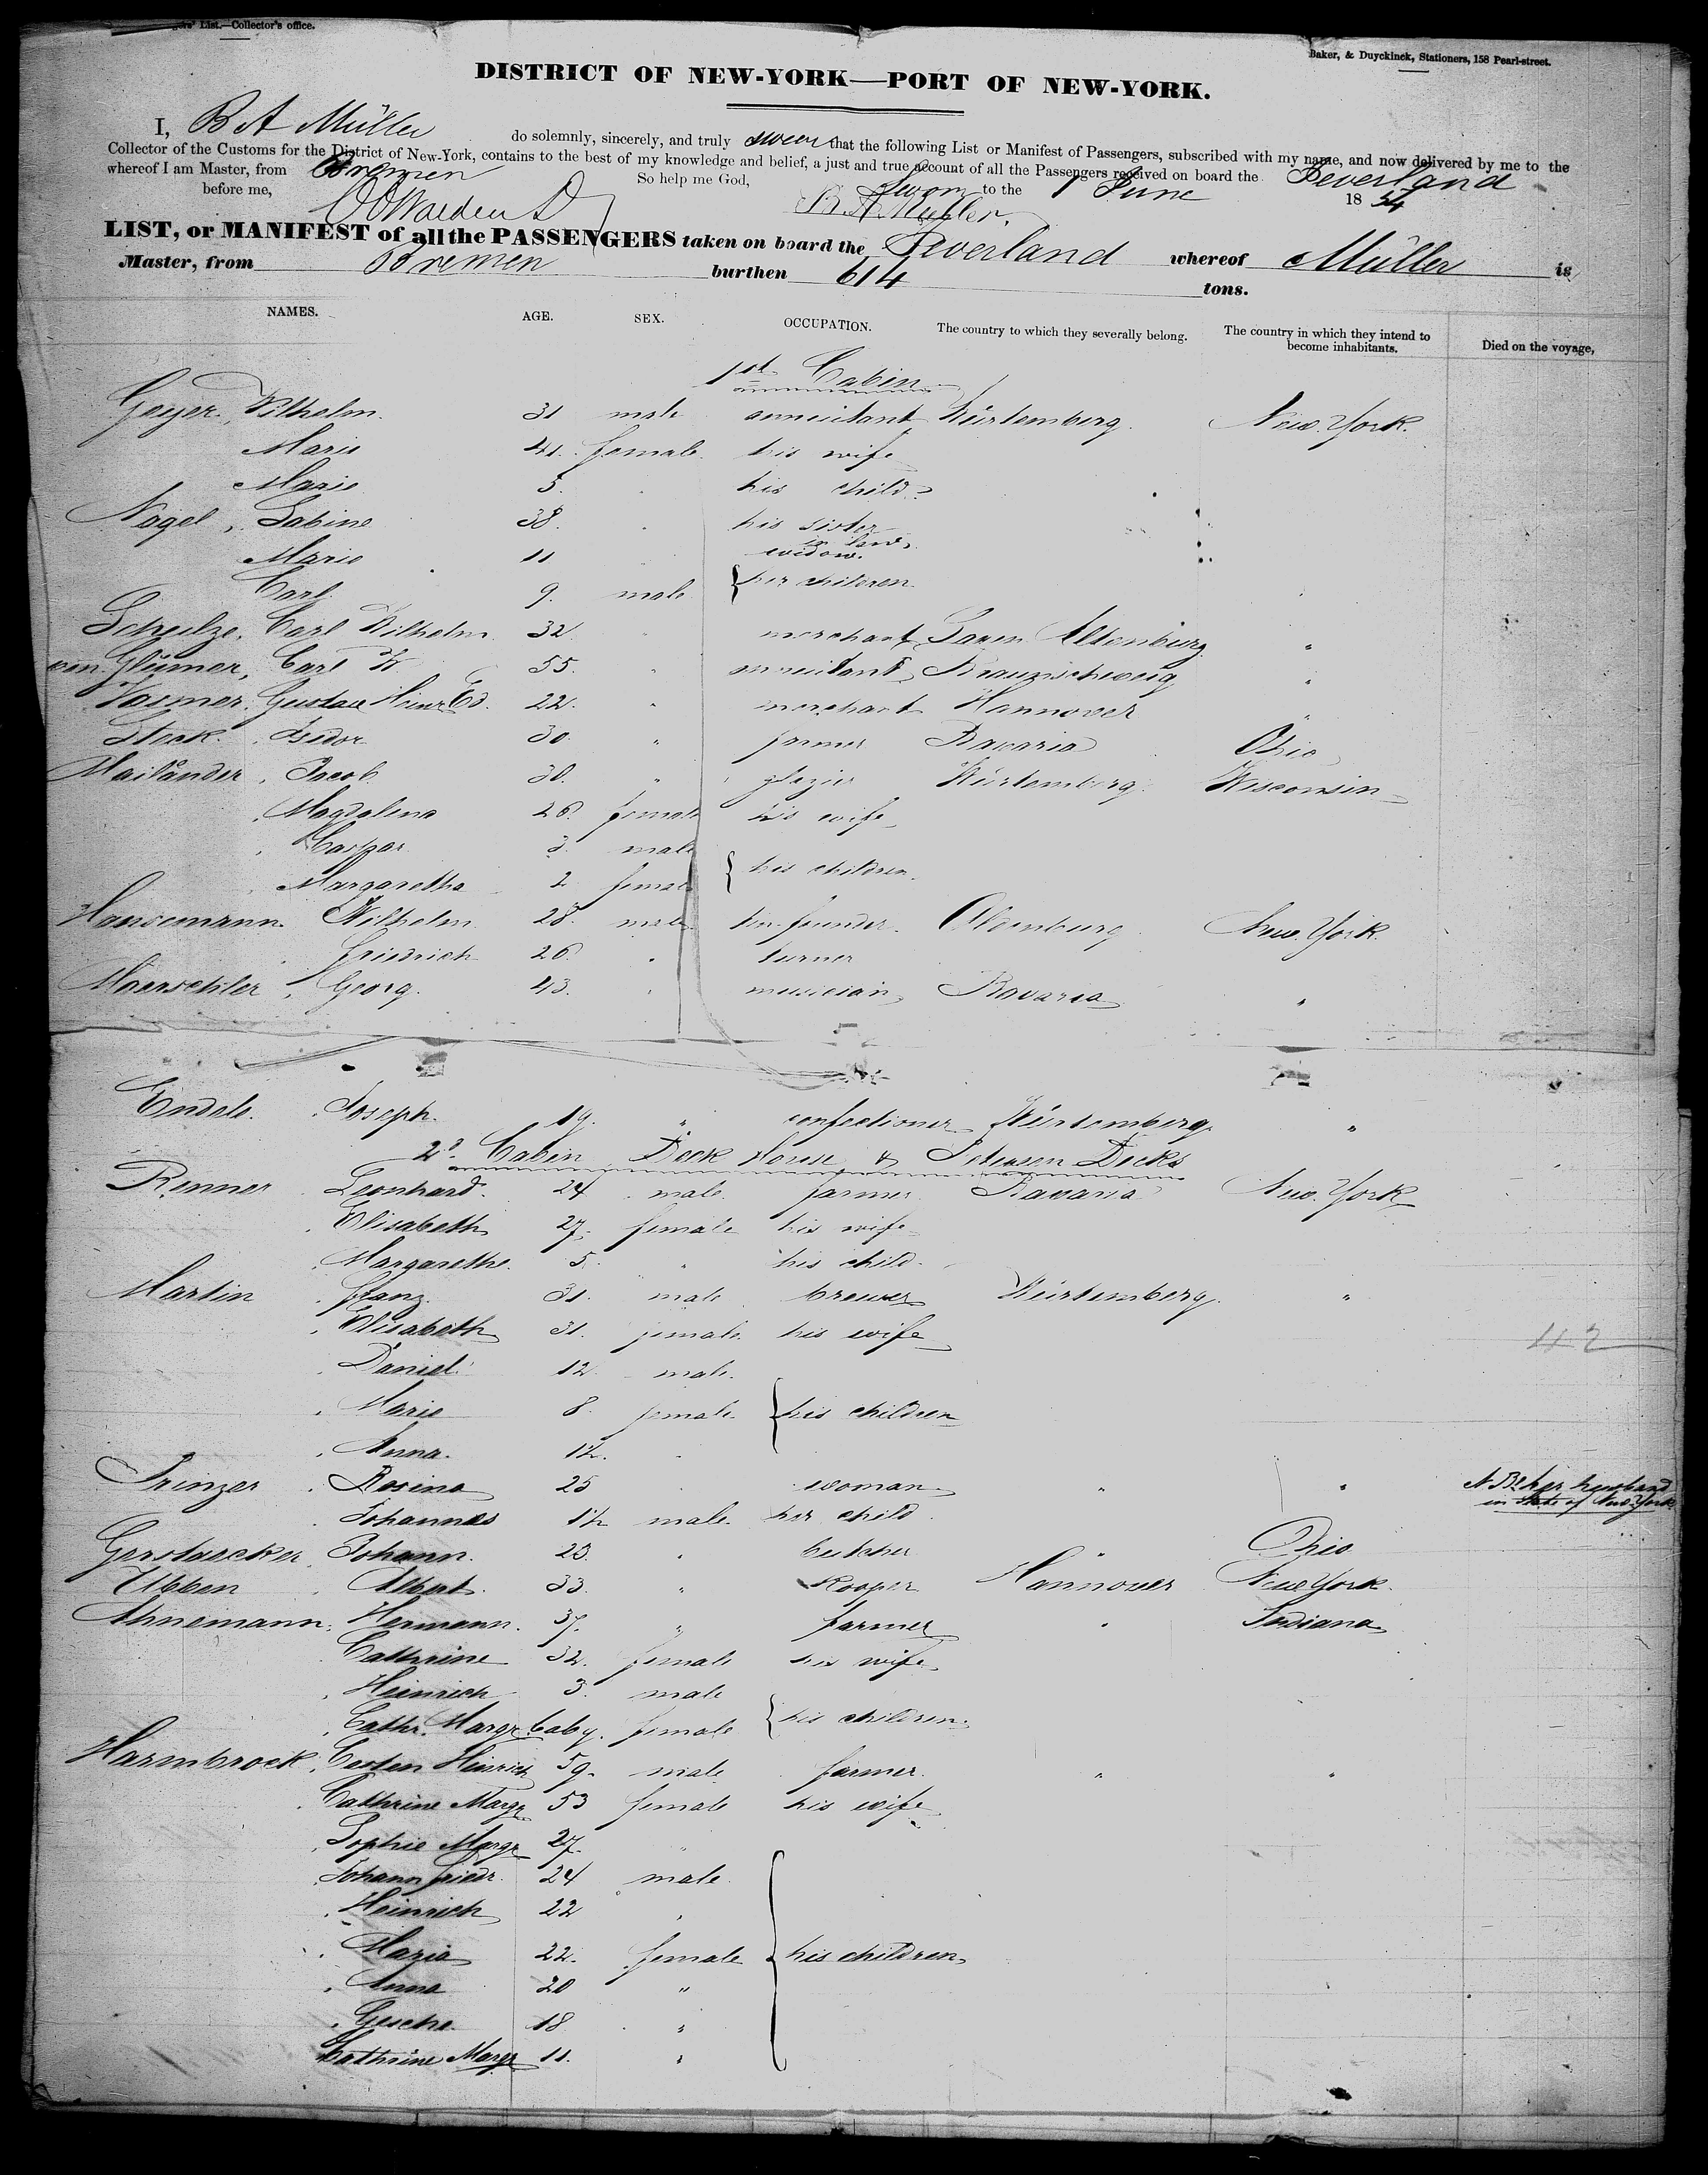 gers' List.—Collector's office.
Baker, & Duyckinck, Stationers, 158 Pearl-street.
DISTRICT OF NEW-YORK—PORT OF NEW-YORK.
I, B A Müller do solemnly, sincerely, and truly swear that the following List or Manifest of Passengers, subscribed with my name, and now delivered by me to the
Collector of the Customs for the District of New-York, contains to the best of my knowledge and belief, a just and true account of all the Passengers received on board the Jeverland
whereof I am Master, from Bremen So help me God,
Sworn to the 1 June 1854
before me, B. A Müller.
LIST, or MANIFEST of all the PASSENGERS taken on board the Jeverland whereof Müller is
Master, from Bremen burthen 614 tons.
NAMES. AGE. SEX. OCCUPATION. The country to which they severally belong. The country in which they intend to become inhabitants. Died on the voyage,
1st Cabin
Geyer, Wilhelm. 31 male annuitant Würtemberg. New. York.
Marie 41. female. his wife
Marie 5. his child
Nagel, Sabine 38. his sister
in law.
widow.
Marie 11
Carl 9. male { her children
Schulze, Carl Wilhelm 32. " merchant Saxen Altenburg "
von Glümer, Carl W. 55. " annuitant Braunschweig "
Vosmer. Gustav Hinr Ed. 22. " merchant Hannover "
Steck. Isidor 30. " farmer Bavaria Ohio
Mailänder, Jacob 30. " glazier Würtemberg. Wisconsin
Magdalena 26. female his wife
Caspar 3. male
Margaretha 2 female { his children.
Hansemann. Wilhelm 28. male founder. Oldenburg New. York.
Friedrich 26. " turner
Georg. 43. musician, Bavaria "
Endele. Joseph. 19. " confectioner Würtemberg. "
2d. Cabin Deck House & Between Decks
Renner Leonhard. 24 male. farmer Bavaria New. York
Elisabeth 27. female his wife
Margarethe. 5. " his child.
Martin Franz. 31. male brewer Würtemberg. "
Elisabeth 31. female. his wife
Daniel. 12. male.
Marie 8. female. { his children
Anna. 1½.
42
Prinzer Rosina 25 woman " " NB her husband
in State of New York
Johannes 1½ male. her child.
Gerstaecker, Johann. 23. " butcher " Ohio
Ubben Albert. 33. " Kooper Hannover New York.
Ahnemann. Hermann. 37. " farmer " Indiana
Cathrine 32. female his wife
Heinrich 3. male
Cathr. Margr baby. female { his children.
Harmbrock. Carsten Hinrich 59. male farmer. " "
Cathrine Margr 53 female his wife
Sophie Margr 27. "
Johann Friedr. 24 male.
Heinrich 22 "
Maria 22. female { his children
Anna 20 "
Gesche. 18. "
Cathrine Margr 11. "